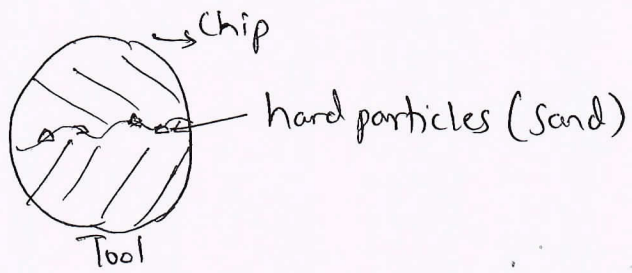 Chip
hard particles (Sand)
Tool